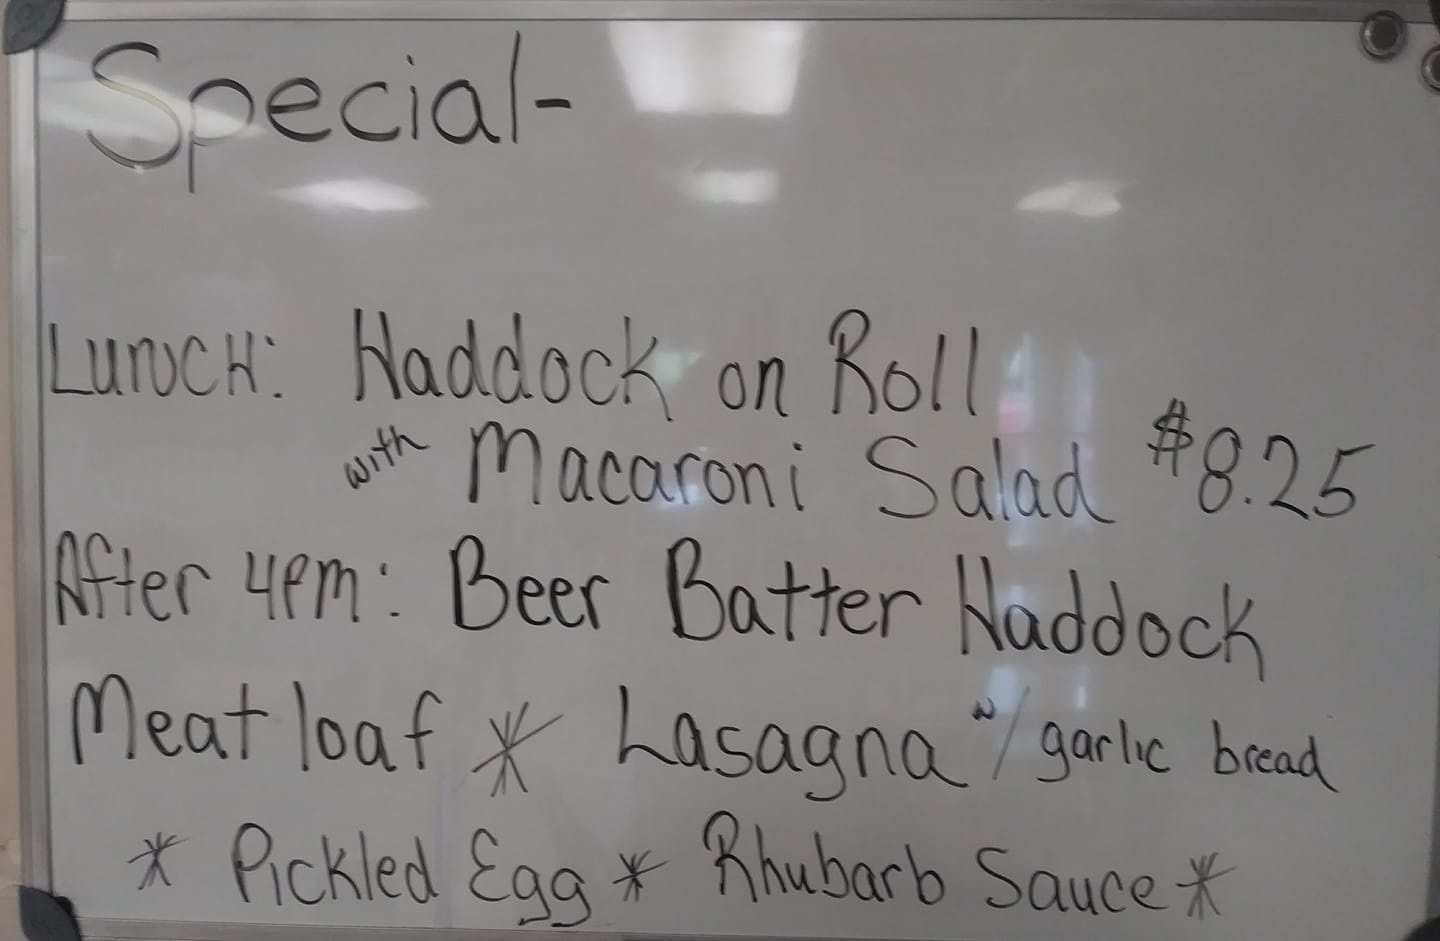 Special-
LUNCH: Haddock on Roll
with Macaroni Salad $8.25
After 4PM: Beer Batter Haddock
Meatloaf * Lasagna w/ garlic bread
* Pickled Egg * Rhubarb Sauce *